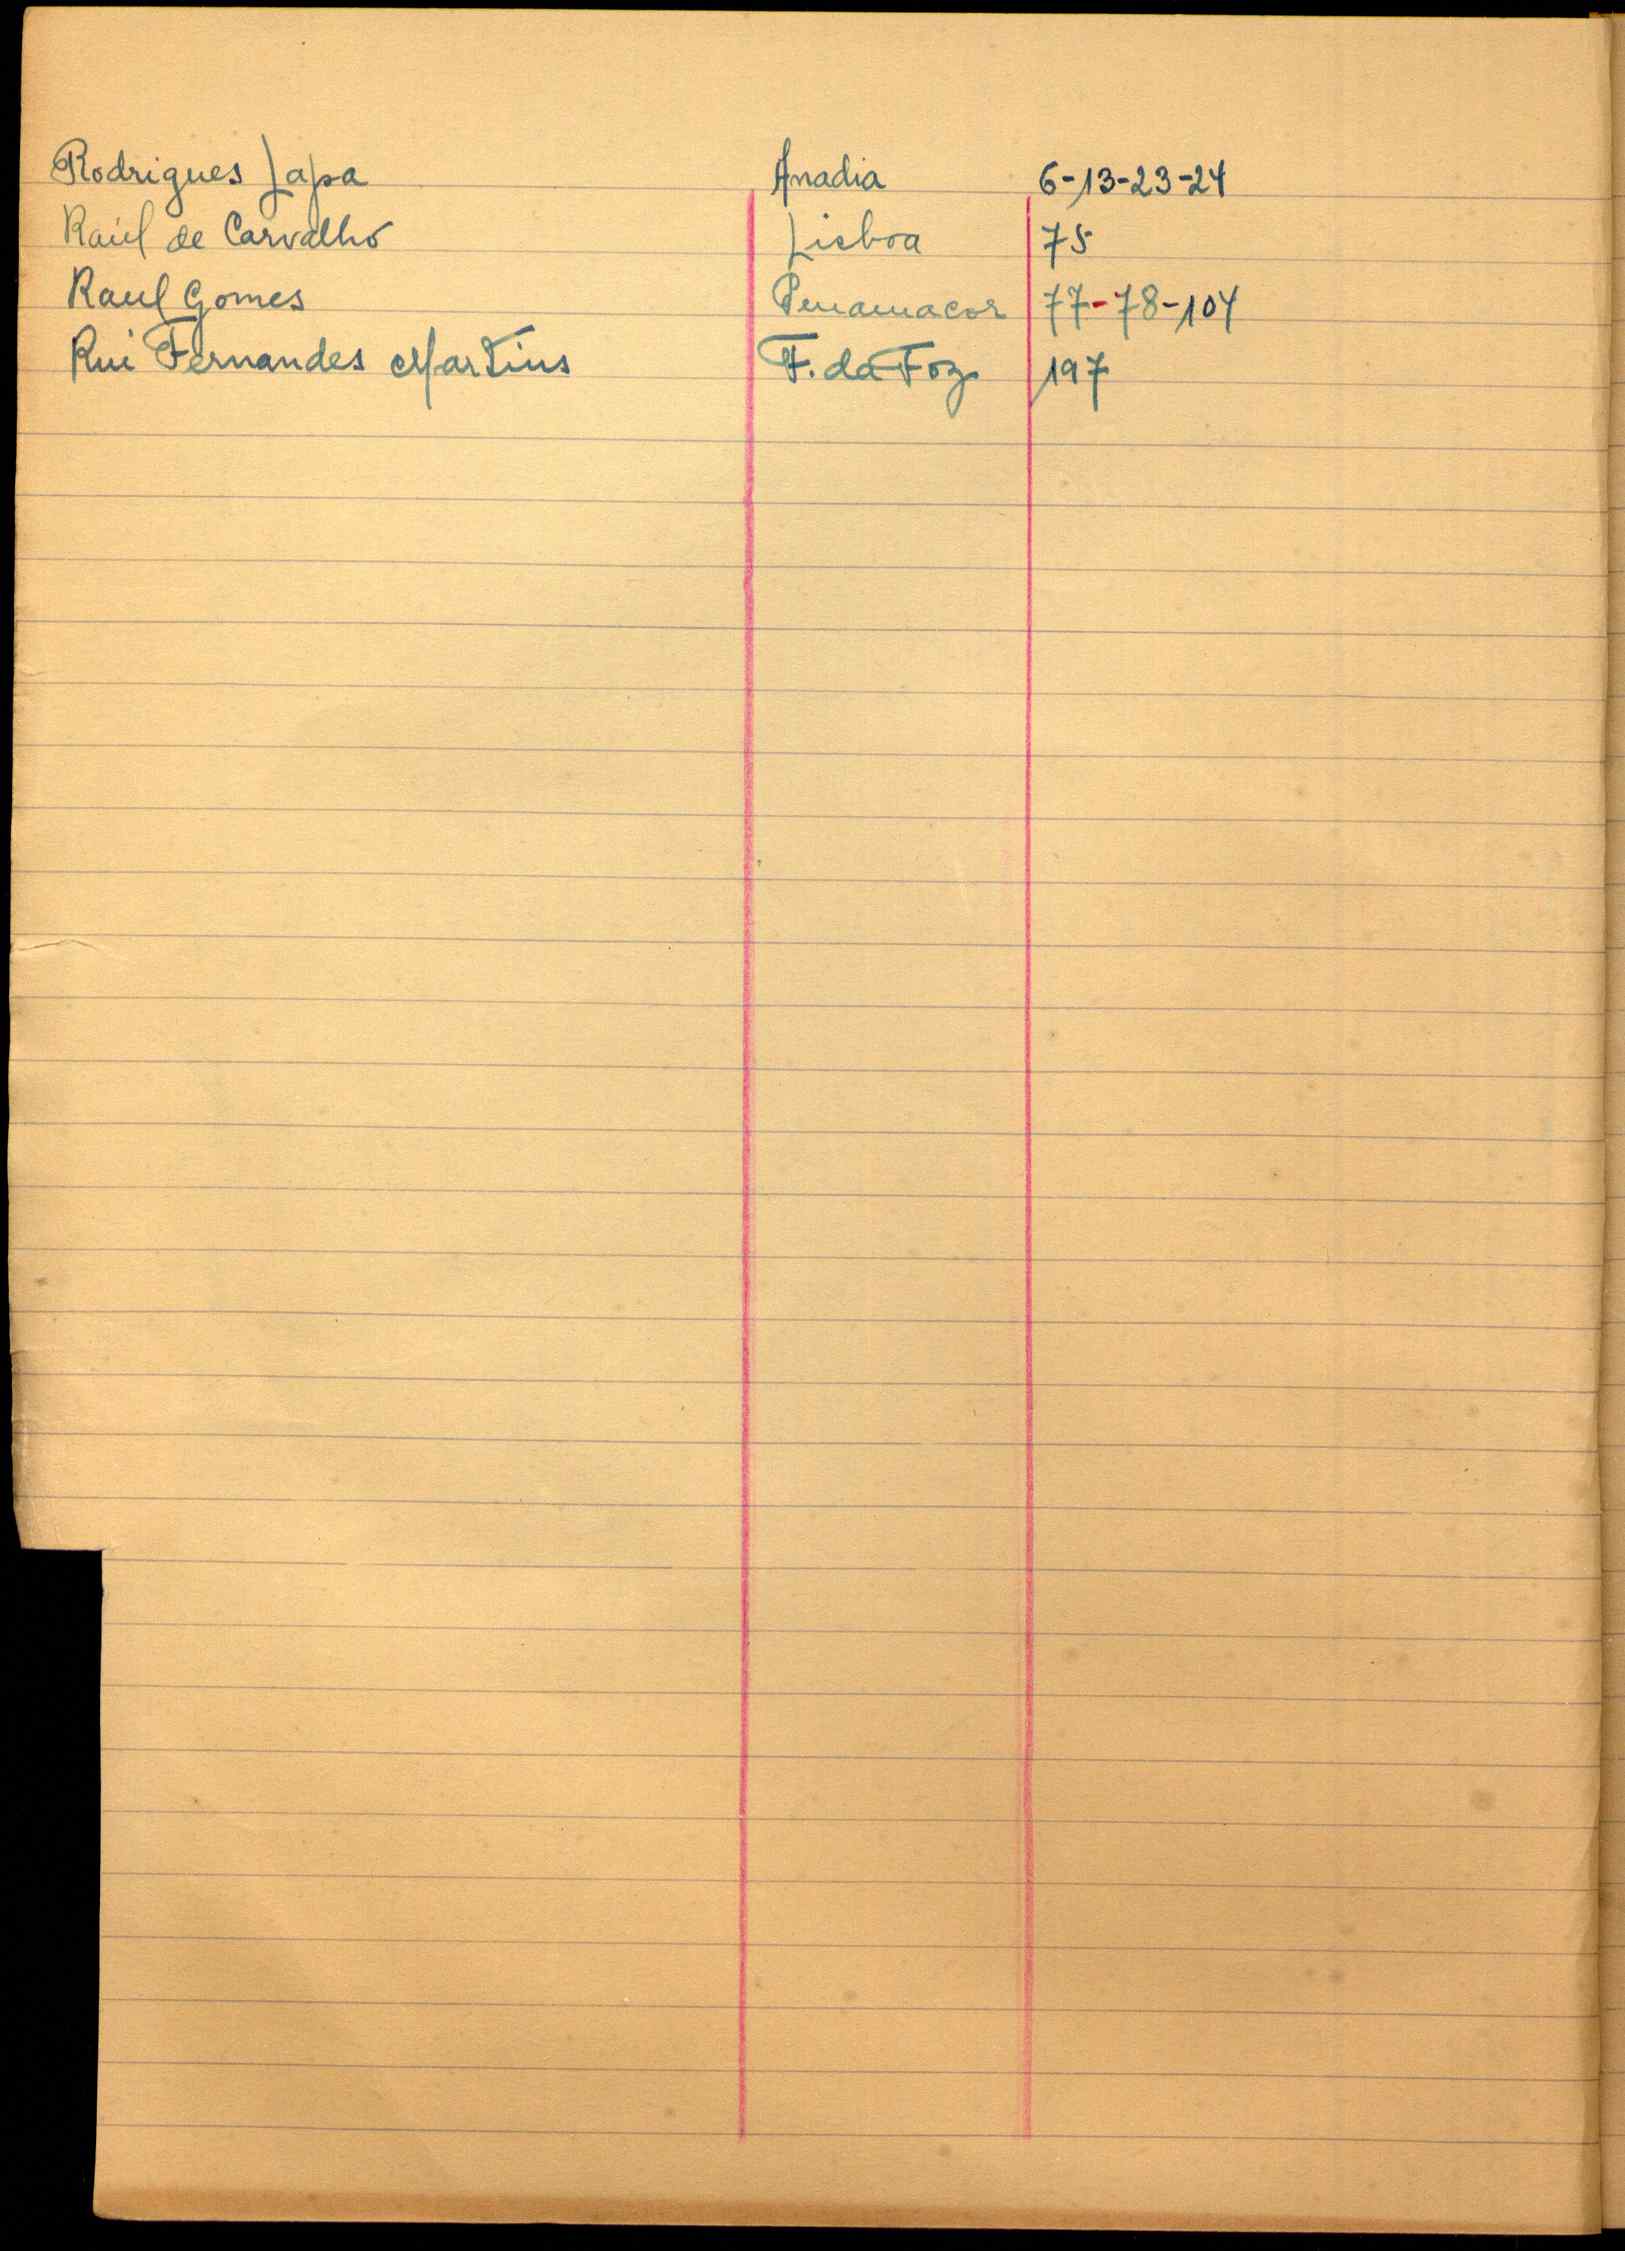 Rodrigues Lapa Anadia 6-13-23-24
Raúl de Carvalho Lisboa 75
Raul Gomes Penamacor 77-78-104
Rui Fernandes Martins F. da Foz 197